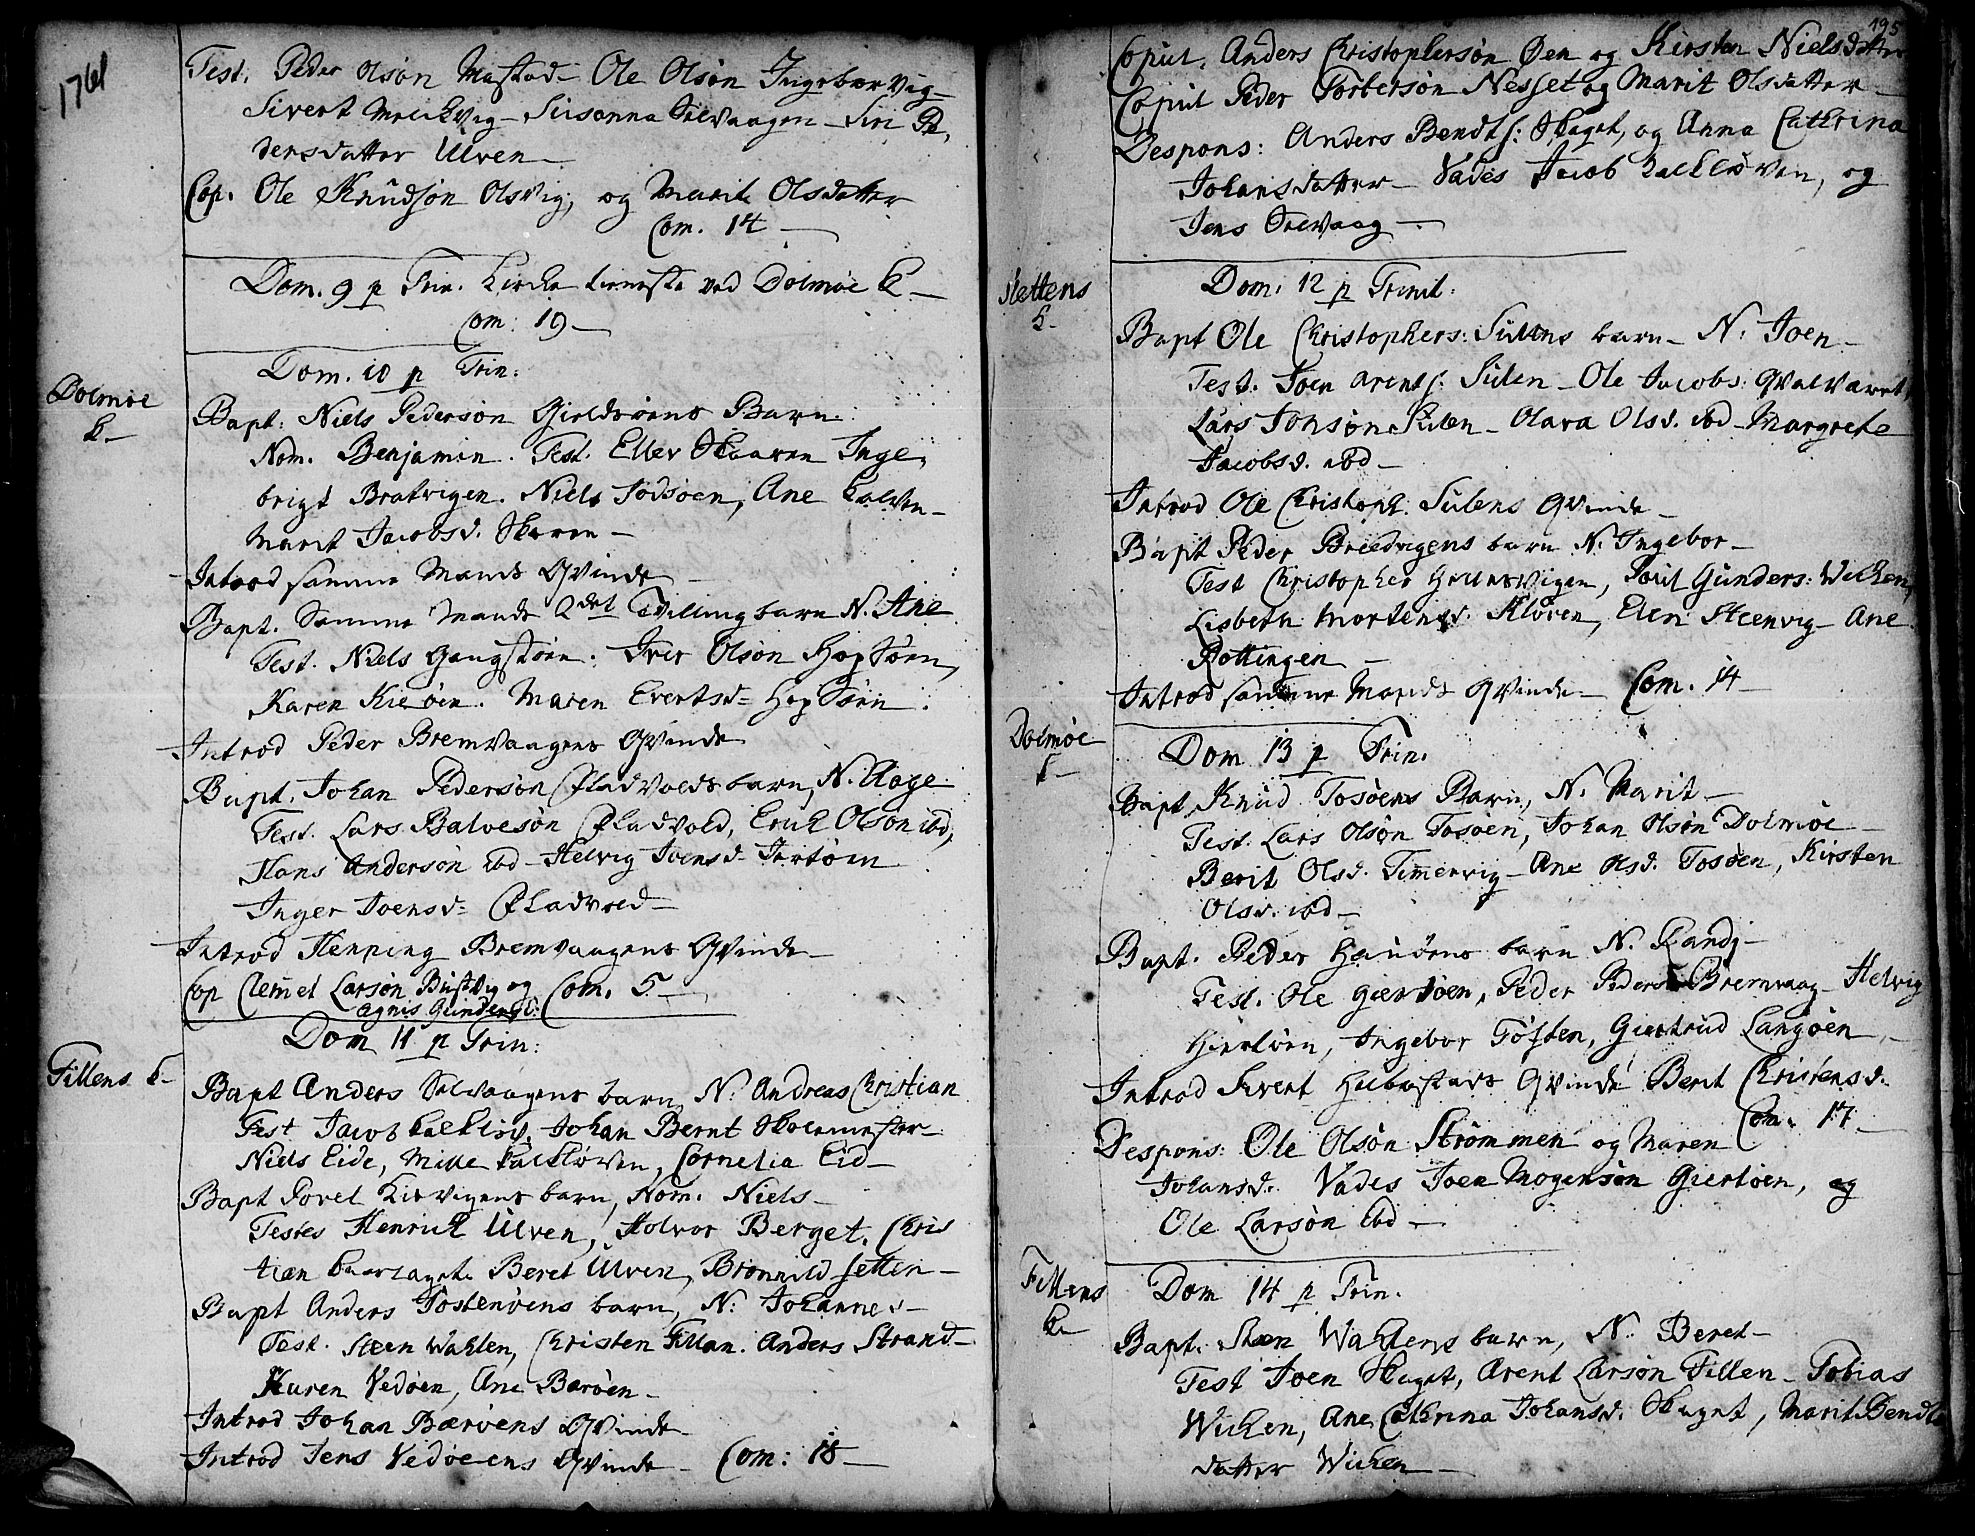 1761
Test. Peder Olsøn Mastad – Ole Olsøn Ingebor Vig –
Sivert Melckvig – Susanna Selvaagen – Siri Pe,
dersdatter Ulven –
Cop. Ole Knudsøn Olsvig, og Marit Olsdatter
Com. 14 –
Dom. 9 p Trin. Kirke tieneste ved Dolmøe K. –
Com: 19 –
Dolmøe
K –
Dom. 10 p Trin:
Bapt: Niels Pedersøn Gieldsøens Barn.
Nom. Benjamin. Test. Eller Skaaren Inge,
brigt Bratvigen. Niels Fodsøen, Ane Kalven –
Marit Jacobsd. Skaren –
Introd samme Mands Qvinde –
Bapt. Samme Mands 2det Tvilling barn N. Ane
Test. Niels Gaugstøen. Iver Olsøn Hopsøen,
Karen Kieøen. Maren Evertsd= Hopsøen.
Introd Peder Bremvaagens Qvinde
Bapt. Johan Pedersøn Fladvolds barn, N. Aage
Test. Lars Balvesøn Fladvold, Erich Olsøn ibd,
Hans Andersøn ibd – Helvig Joensd= Jertøen
Inger Joensd= Fladvold –
Introd Henning Bremvaagens Qvinde –
Cop Clemet Larsøn Bustvig og
Agnis Gundersd:
Com. 5 –
Fillens K –
Dom 11 p Trin:
Bapt Anders Selvaagens barn, N. Andreas Christian
Test Jacob Kalkløv, Johan Bernt Skolemester –
Niels Eide, Mille Kalkløven, Cornelia Eid –
Bapt Povel Kirvigens barn, Nom. Niels –
Testes Henrich Ulven, Holvor Berget, Chris
tian Beret Ulven, Bronnild Setten –
Bapt Anders Tostenøens barn, N: Johannes –
Test. Steen Wahlen, Christen Fillan. Anders Strand –
Karen Vedøen, Ane Barøen –
Introd Johan Bærøens Qvinde –
Introd Jens Vedøeens Qvinde – Com: 18 –
195
Copul. Anders Christophersøn Øen og Kirsten Nielsdatter
Copul Peder Torbersøn Nesset og Marit Olsdatter –
Despons: Anders Bendts: Skaget, og Anna Cathrina
Johansdatter – Vades Jacob Kalkløven, og
Jens Selvaag –
Slettens
K –
Dom: 12 p Trinit:
Bapt Ole Christophers: Sulens barn – N. Joen –
Test. Joen Arents: Sulen – Ole Jacobs: Qvalværet,
Lars Jonsøn Sulen – Olava Olsd. ibd – Margrete
Jacobsd. ibd –
Introd Ole Christoph. Sulens Qvinde –
Bapt Peder Breedvigens barn N. Ingebor –
Test Christopher Hellesvigen, Povil Gunders: Wichen,
Lisbeth Mortensd. Kløven, Elen Steenvig – Ane
Rottingen –
Introd samme Mands Qvinde – Com. 14 –
Dolmøe
K –
Dom 13 p Trin.
Bapt Knud Tosøens Barn, N. Marit –
Test. Lars Olsøn Tosøen, Johan Olsøn Dolmøe –
Berit Olsd. Timervig – Ane Olsd. Tosøen, Kirsten
Olsd. ibd –
Bapt. Peder Hauøens barn N. Randj –
Test. Ole Giertøen, Peder Pedersøn Bremvaag – Helvig
Hiertøen, Ingebor Tøften, Giertrud Langøen –
Introd Sivert Helbostads Qvinde Berit Christensd.
Com. 17 –
Despons: Ole Olsøn Strømmen og Maren
Johansd. Vades Joen Mogensøn Giertøen, og
Ole Larsøn ibd –
Fillens
K –
Dom 14 p Trin.
Bapt. Steen Wahlens barn, N. Beret –
Test Joen Skaget, Arent Larsøn Fillen – Tobias
Wichen, Ane Cathrina Johansd. Skaget, Marit Bendts
datter Wichen –